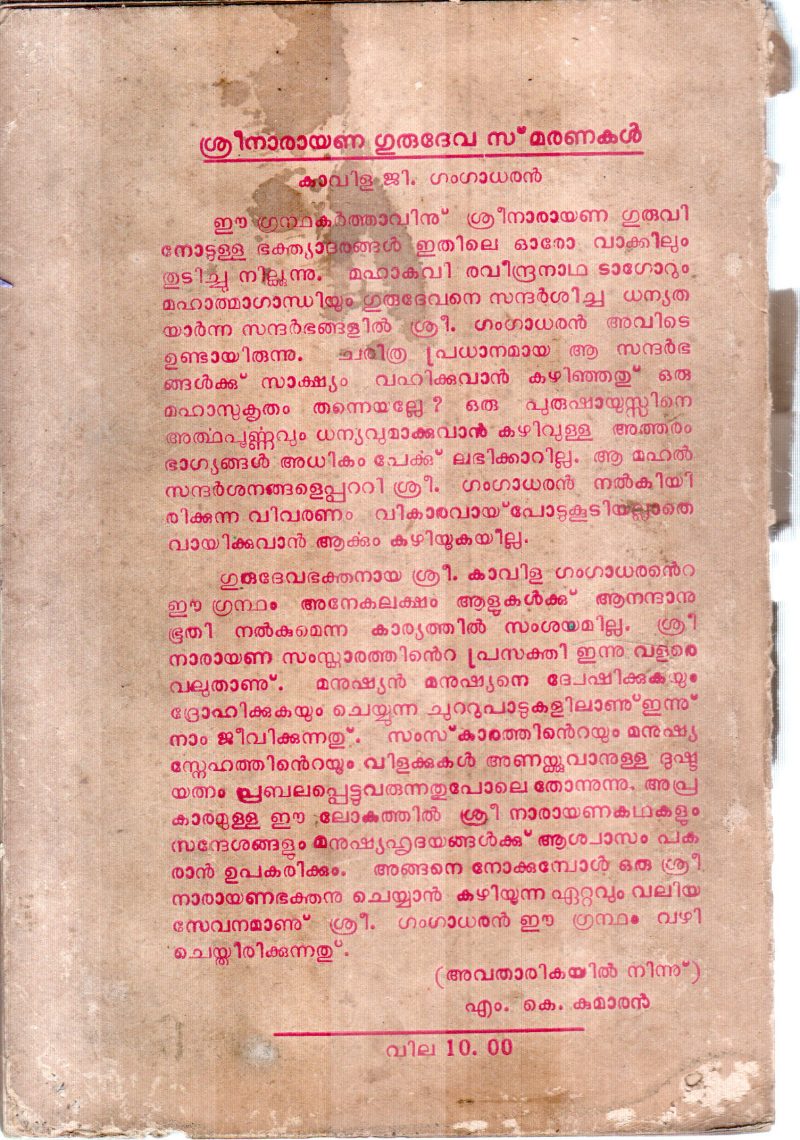 ശ്രീനാരായണ ഗുരുദേവ സ്മരണകൾ
കാവിള ജി. ഗംഗാധരൻ
ഈ ഗ്രന്ഥകർത്താവിനു് ശ്രീനാരായണ ഗുരുവി
നോടുള്ള ഭക്ത്യാദരങ്ങൾ ഇതിലെ ഓരോ വാക്കിലും
തുടിച്ചു നില്ക്കുന്നു. മഹാകവി രവീന്ദ്രനാഥ ടാഗോറും
മഹാത്മാഗാന്ധിയും ഗുരുദേവനെ സന്ദർശിച്ച ധന്യത
യാർന്ന സന്ദർഭങ്ങളിൽ ശ്രീ. ഗംഗാധരൻ അവിടെ
ഉണ്ടായിരുന്നു. ചരിത്ര പ്രധാനമായ ആ സന്ദർഭ
ങ്ങൾക്കു് സാക്ഷ്യം വഹിക്കുവാൻ കഴിഞ്ഞതു് ഒരു
മഹാസുകൃതം തന്നെയല്ലേ? ഒരു പുരുഷായുസ്സിനെ
അർത്ഥപൂർണ്ണവും ധന്യവുമാക്കുവാൻ കഴിവുള്ള അത്തരം
ഭാഗ്യങ്ങൾ അധികം പേർക്കു് ലഭിക്കാറില്ല. ആ മഹൽ
സന്ദർശനങ്ങളെപ്പററി ശ്രീ. ഗംഗാധരൻ നൽകിയി
രിക്കുന്ന വിവരണം വികാരവായ്പോടുകൂടിയല്ലാതെ
വായിക്കുവാൻ ആർക്കും കഴിയൂകയില്ല.
ഗുരുദേവഭക്തനായ ശ്രീ. കാവിള ഗംഗാധരൻെറ
ഈ ഗ്രന്ഥം അനേകലക്ഷം ആളുകൾക്കു് ആനന്ദാനു
ഭൂതി നൽകുമെന്ന കാര്യത്തിൽ സംശയമില്ല. ശ്രീ
നാരായണ സംസ്ക്കാരത്തിൻെറ പ്രസക്തി ഇന്നു വളരെ
വലുതാണു്. മനുഷ്യൻ മനുഷ്യനെ ദ്വേഷിക്കുകയും
ദ്രോഹിക്കുകയും ചെയ്യുന്ന ചുററുപാടുകളിലാണു് ഇന്നു്
നാം ജീവിക്കുന്നതു്. സംസ്കാരത്തിൻെറയും മനുഷ്യ
സ്നേഹത്തിൻെറയും വിളക്കുകൾ അണയ്ക്കുവാനുള്ള ദുഷ്ട
യത്നം പ്രബലപ്പെട്ടുവരുന്നതുപോലെ തോന്നുന്നു. അപ്ര
കാരമുള്ള ഈ ലോകത്തിൽ ശ്രീ നാരായണകഥകളും
സന്ദേശങ്ങളും മനുഷ്യഹൃദയങ്ങൾക്കു് ആശ്വാസം പക
രാൻ ഉപകരിക്കും. അങ്ങനെ നോക്കുമ്പോൾ ഒരു ശ്രീ
നാരായണഭക്തനു ചെയ്യാൻ കഴിയുന്ന ഏറ്റവും വലിയ
സേവനമാണു് ശ്രീ. ഗംഗാധരൻ ഈ ഗ്രന്ഥം വഴി
ചെയ്തിരിക്കുന്നതു്.
(അവതാരികയിൽ നിന്നു്)
എം. കെ. കുമാരൻ
വില 10. 00